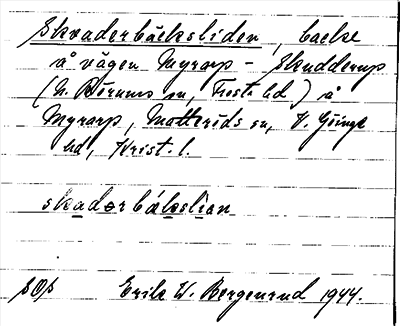 Skvaderbäcksliden, backe
å vägen Myrarp - Skudderup
(N. Rörums sn, Frosta hd) å
Myrarp, Matteröds sn, V. Göinge
hd, Krist. l.
skadərbákslian
SOS Erik W. Bergenrud 1944.